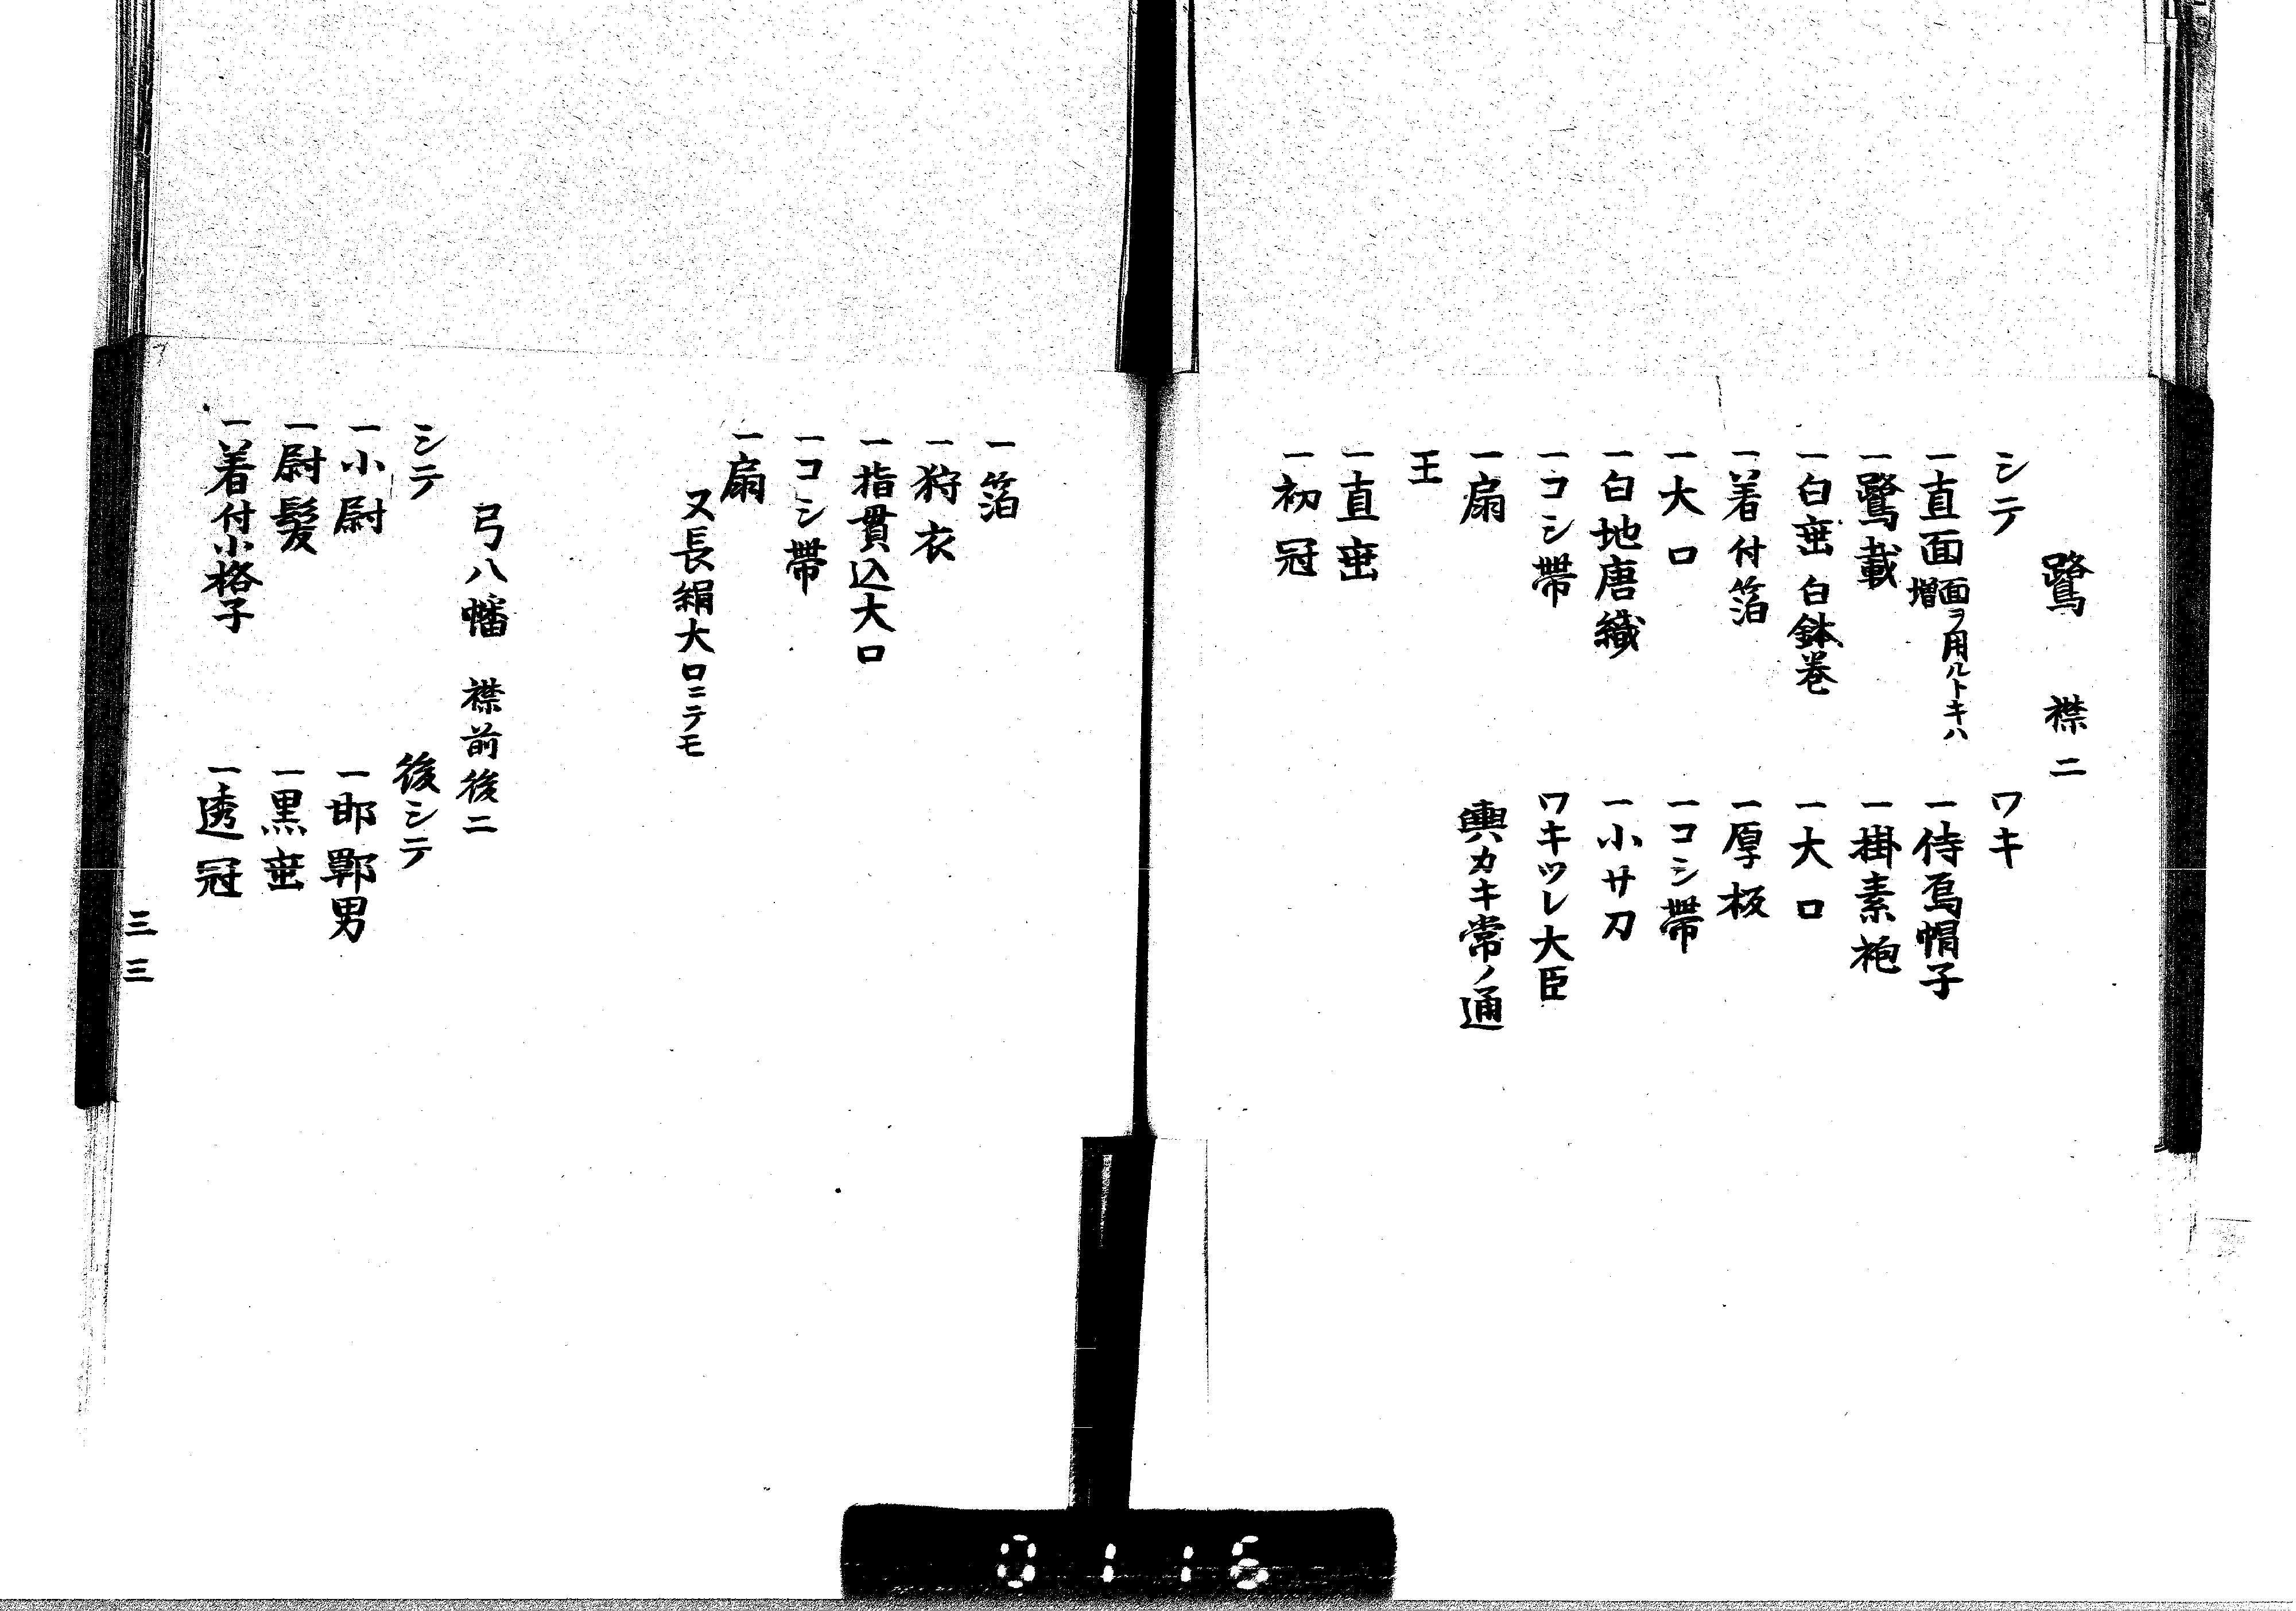 鷺　襟二
シテ
一直面 面ヲ用ルトキハ増
一鷺載
一白垂 白鉢巻
一着付箔
一大口
一白地唐織
一コシ帯
一扇
ワキ
一侍烏帽子
一掛素袍
一大口
一厚板
一コシ帯
一小サ刀
ワキツレ大臣
輿カキ常ノ通
王
一直垂
一初冠
一箔
一狩衣
一指貫込大口
一コシ帯
一扇
又長絹大口ニテモ
弓八幡　襟前後二
シテ
一小尉
一尉髪
一着付小格子
後シテ
一邯鄲男
一黒垂
一透冠
三三
0116